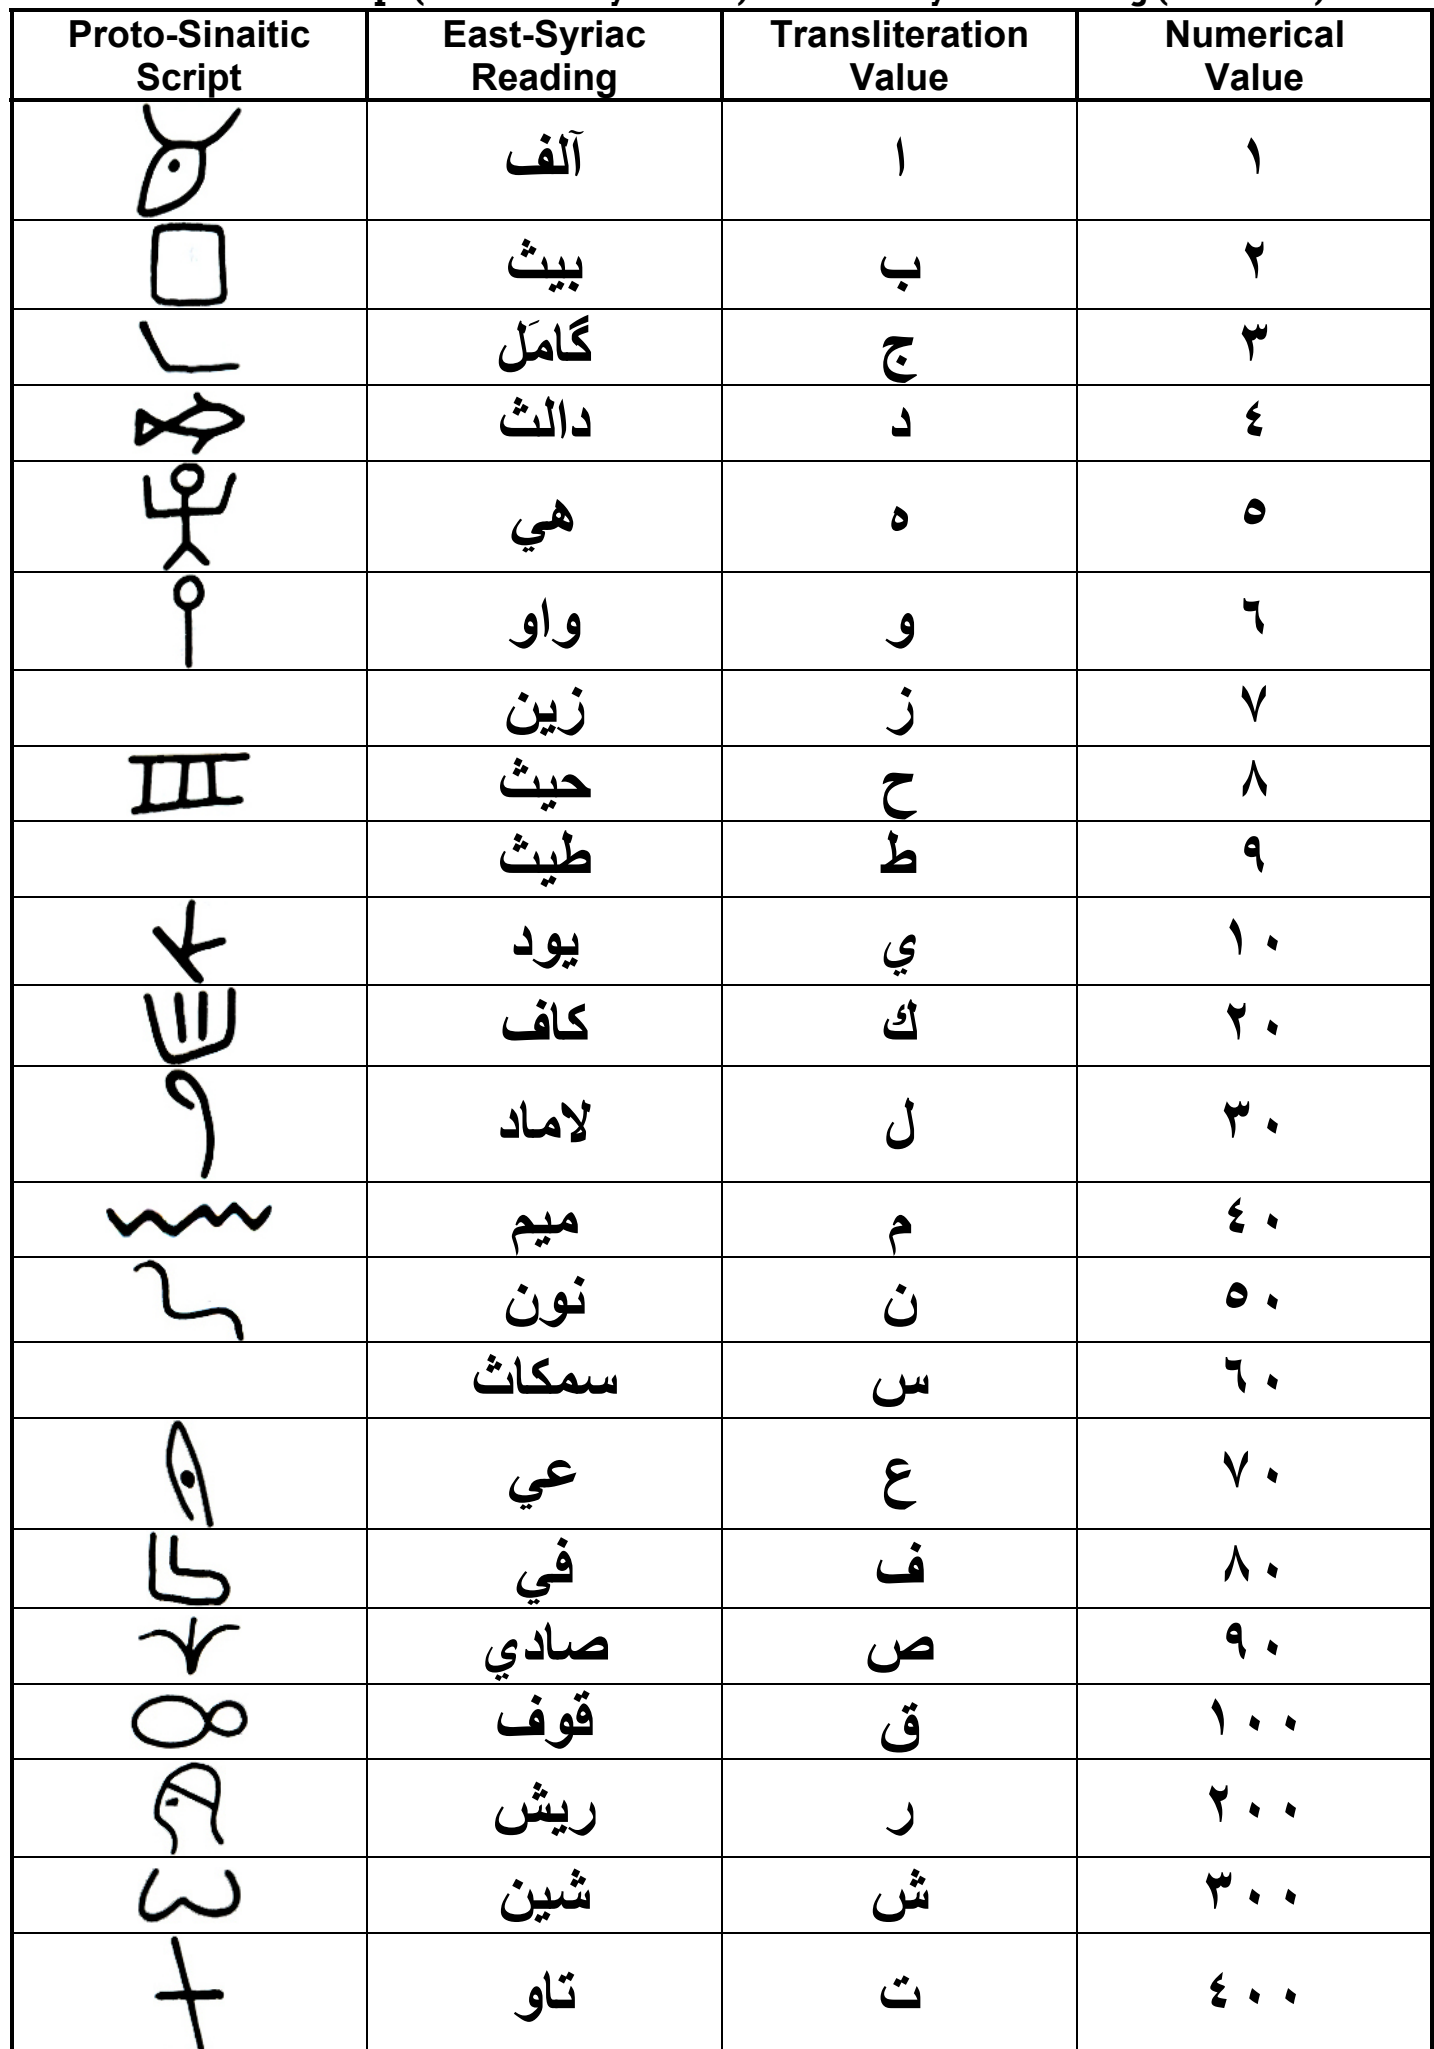 Proto-Sinaitic Script East-Syriac Reading Transliteration Value Numerical Value
آلف ا ١
بيث ب ٢
گامَل ج ٣
دالث د ٤
هي ه ٥
واو و ٦
زين ز ٧
حيث ح ٨
طيث ط ٩
يود ي ١٠
كاف ك ٢٠
لاماد ل ٣٠
ميم م ٤٠
نون ن ٥٠
سمكاث س ٦٠
عي ع ٧٠
في ف ٨٠
صادي ص ٩٠
قوف ق ١٠٠
ريش ر ٢٠٠
شين ش ٣٠٠
تاو ت ٤٠٠